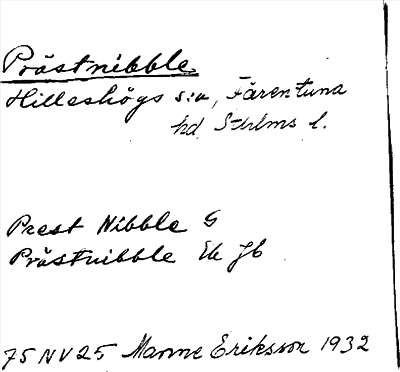 Prästnibble
Hilleshögs s:n, Färentuna
hd, Sthlms l.
Prest Nibble G
Prästnibble Ek Jb
75 NV 25 Manne Eriksson 1932